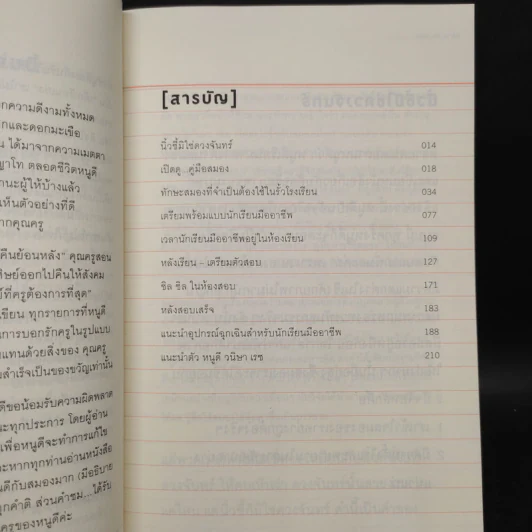 กความดีงามทั้งหมด
กและดอกมะเขือ
น ได้มาจากความเมตตา
ญาโท ตลอดชีวิตหนูดี
านะผู้ให้บ้างแล้ว
เห็นตัวอย่างที่ดี
ากคุณครู
คืนย้อนหลัง" คุณครูสอน
ศิษย์ออกไปคืนให้สังคม
ที่ครูต้องการที่สุด"
เขียน ทุกรายการที่หนูดี
การบอกรักครูในรูปแบบ
แทนด้วยสิ่งของ คุณครู
สำเร็จเป็นของขวัญเท่านั้น
ดีขอน้อมรับความผิดพลาด
ณะทุกประการ โดยผู้อ่าน
เพื่อหนูดีจะทำการแก้ไข
ะหากทุกท่านอ่านหนังสือ
นดีกับสมองมาก (มีอธิบาย
ทุกคำติ ส่วนคำชม...ได้รับ
ครูของหนูดีค่ะ
[สารบัญ]
นิ้วชี้มิใช่ดวงจันทร์ 014
เปิดดู...คู่มือสมอง 018
ทักษะสมองที่จำเป็นต้องใช้ในรั้วโรงเรียน 034
เตรียมพร้อมแบบนักเรียนมืออาชีพ 077
เวลานักเรียนมืออาชีพอยู่ในห้องเรียน 109
หลังเรียน – เตรียมตัวสอบ 127
ชิล ชิล ในห้องสอบ 171
หลังสอบเสร็จ 183
แนะนำอุปกรณ์ฉุกเฉินสำหรับนักเรียนมืออาชีพ 188
แนะนำตัว หนูดี วนิษา เรซ 210